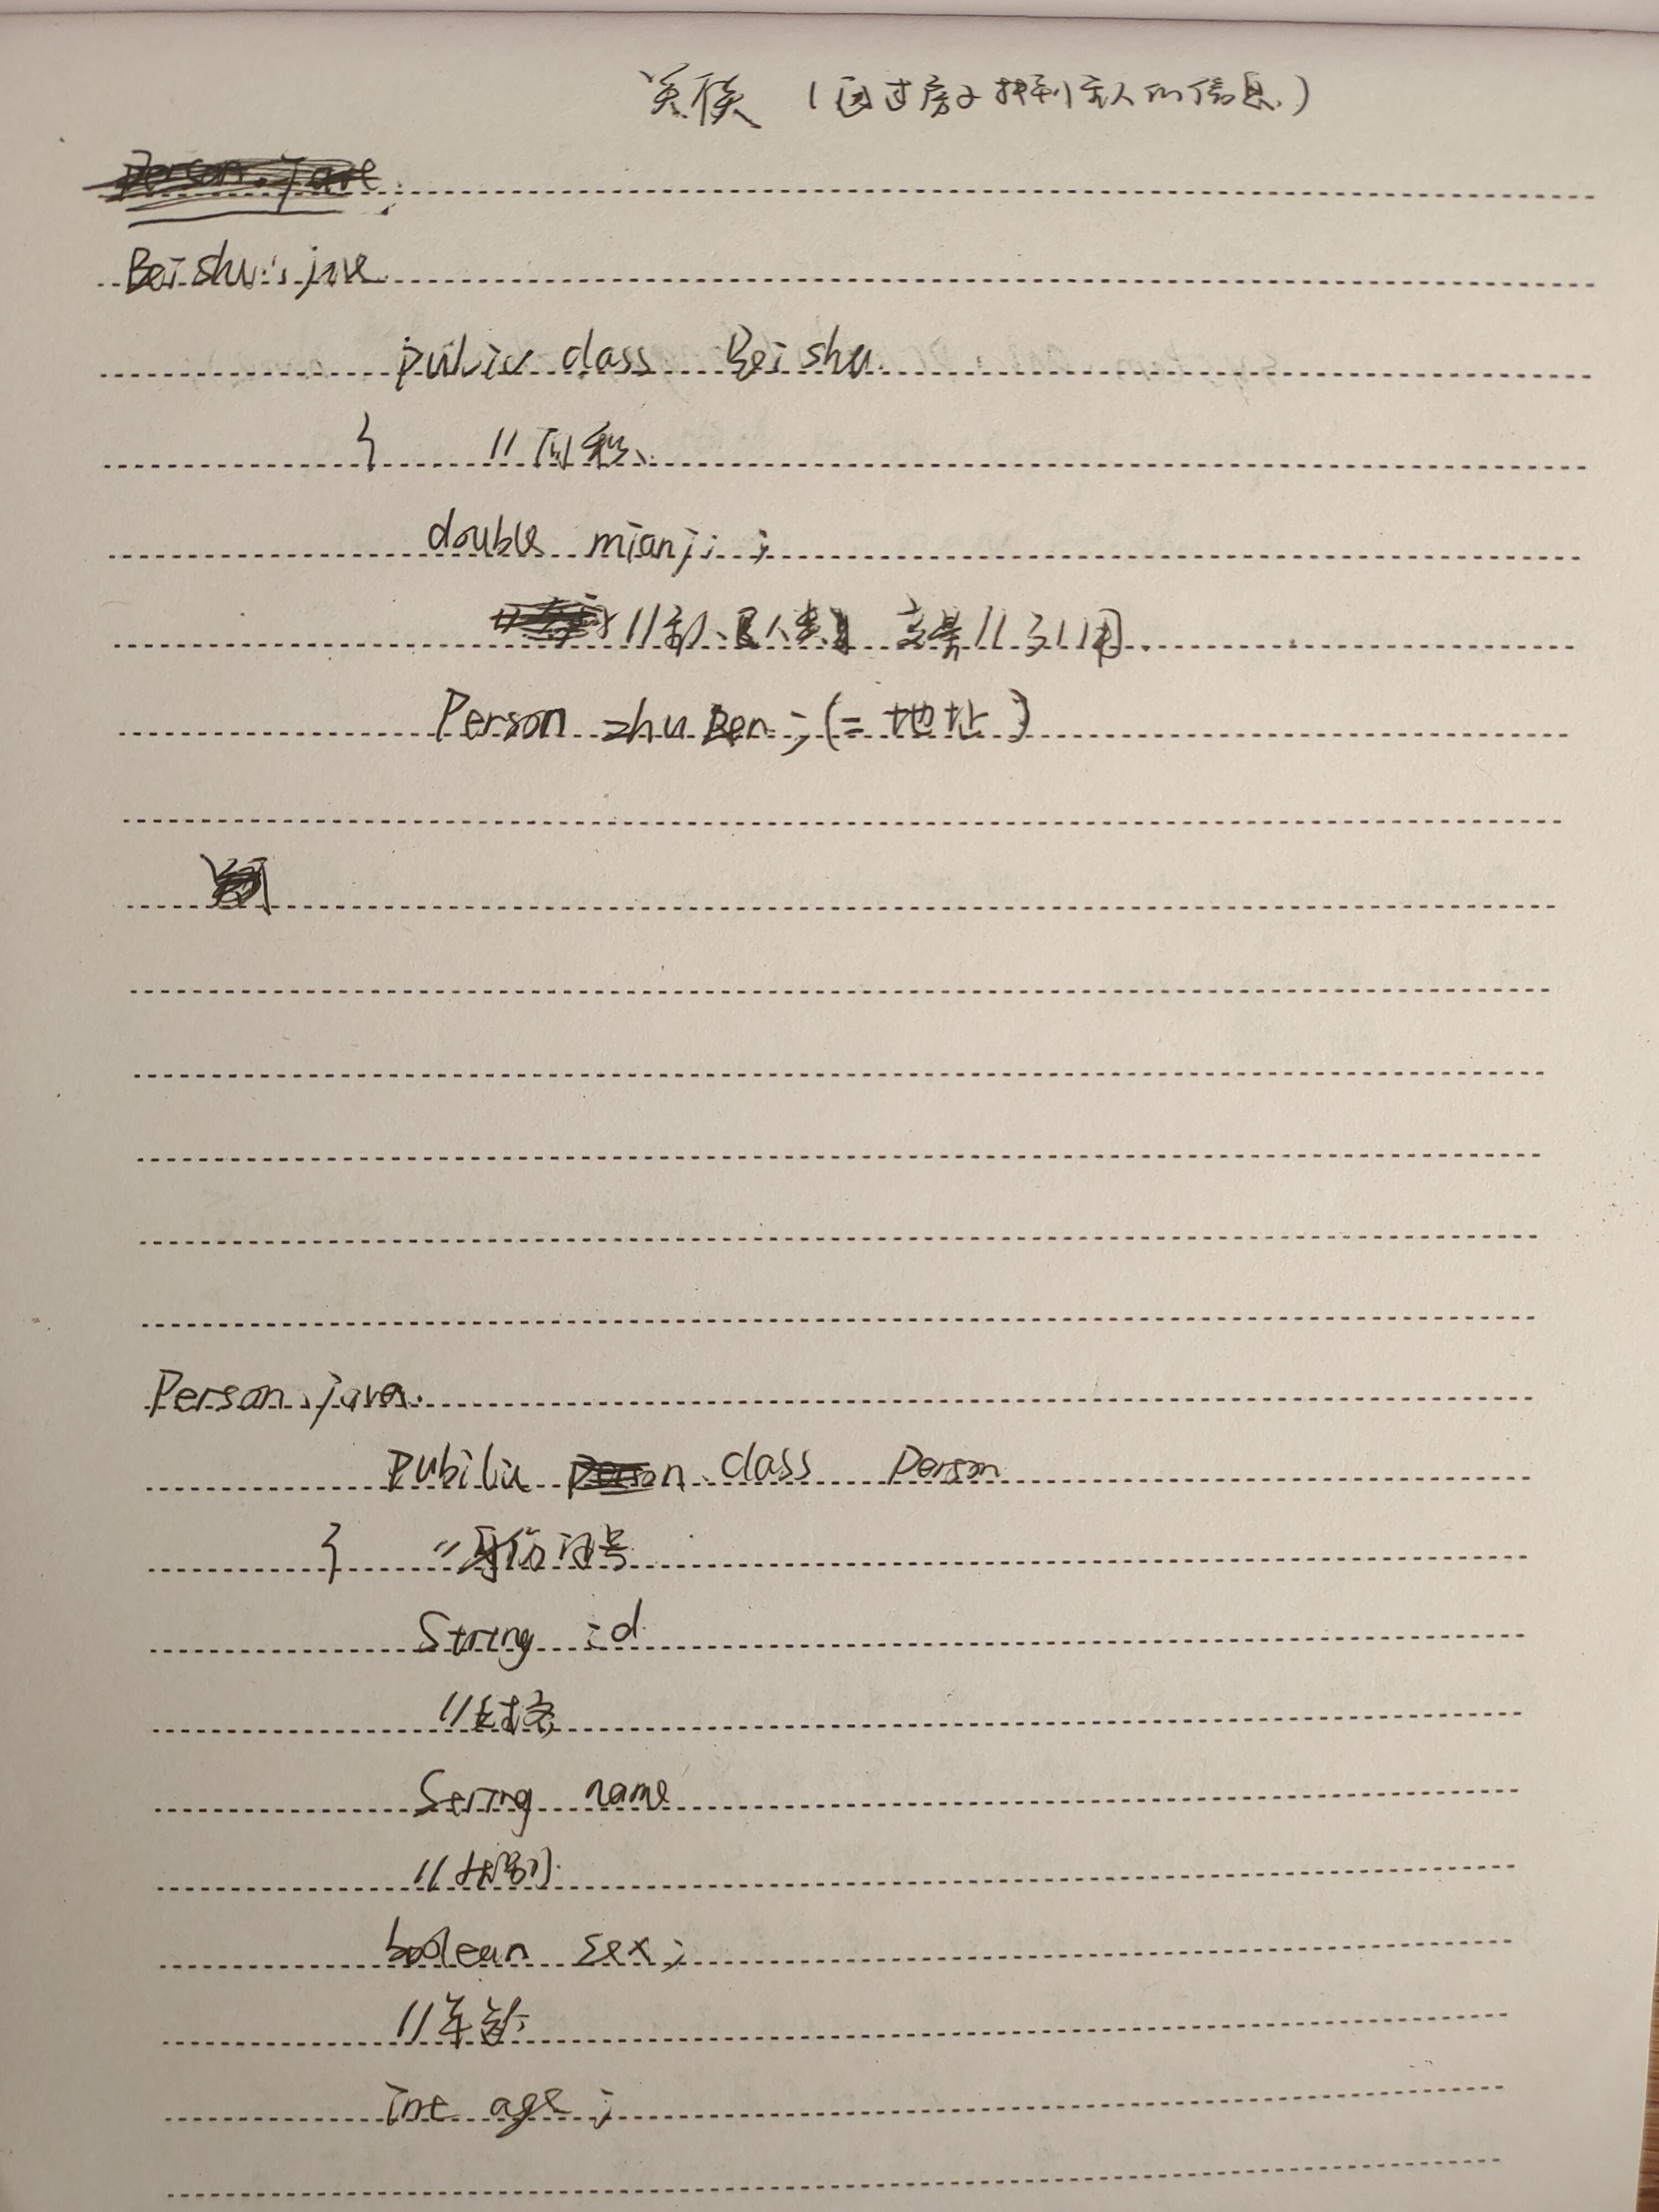 关联 (通过房子找到主人的信息)
Beishu. java
public class Beishu
{ // 面积
double mianji ;
变量 // 引用
Person zhuRen ; (= 地址)
Person. java
Pubilic class Person
{ // 身份证号
String id
// 姓名
String name
// 性别
boolean sex ;
// 年龄
int age ;